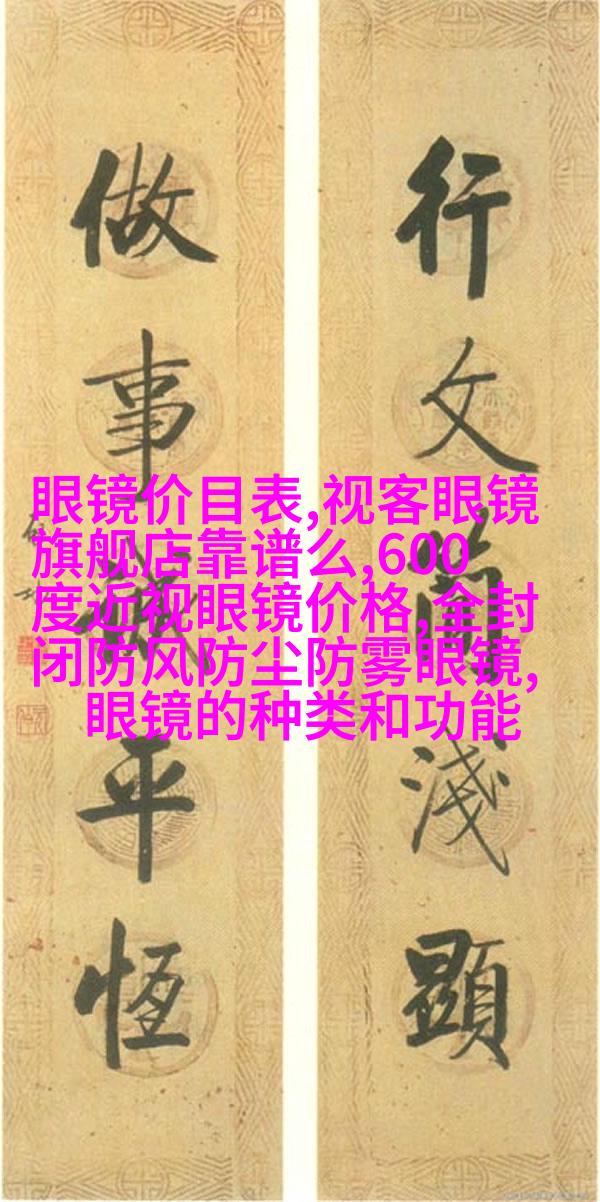 行文簡淺顯
做事平恆
眼镜价目表,视客眼镜
旗舰店靠谱么,600
度近视眼镜价格,全封
闭防风防尘防雾眼镜,
眼镜的种类和功能